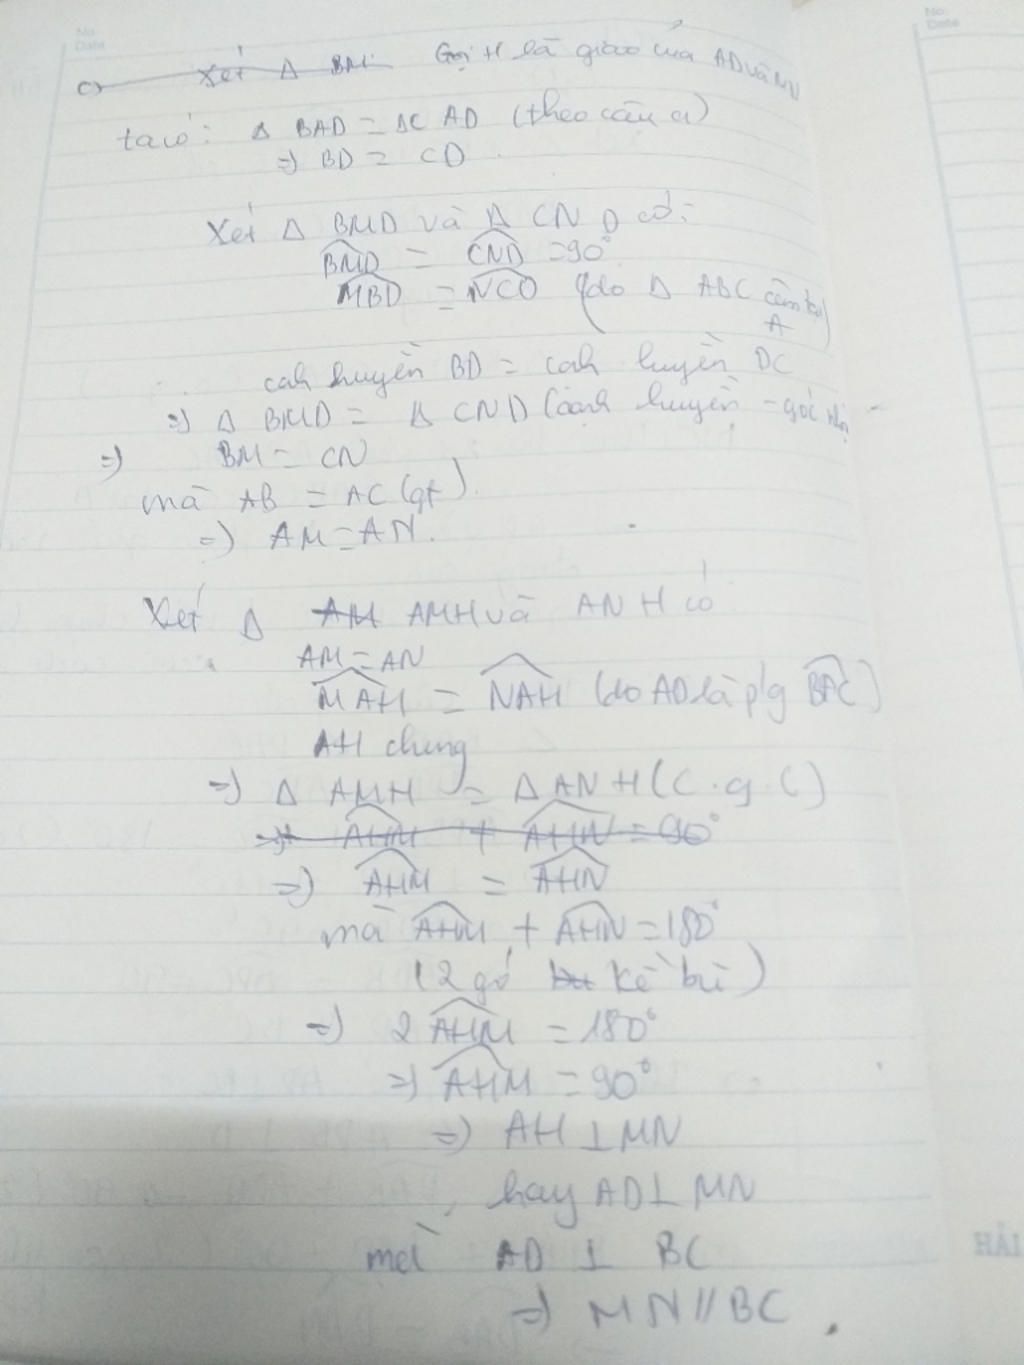 No.
Date
No.
Date
c) Xét Δ BM Gọi H là giao của AD và MN
ta có: Δ BAD = ΔC AD (theo câu a)
=> BD = CD
Xét Δ BMD và Δ CN D có:
BMD = CND = 90°
MBD = NCD (do Δ ABC cân tại
A)
cah huyền BD = cah huyền DC
=> Δ BMD = Δ CND (cạnh huyền - góc nhọn
=> BM = CN
mà AB = AC (gt).
=> AM = AN.
Xét Δ AM AMH và ANH có
AM = AN
MAH = NAH (do AD là p/g BAC)
AH chung
=> Δ AMH = Δ ANH (C.g.C)
=> AHM + AHN = 90°
=> AHM = AHN
mà AHM + AHN = 180°
(2 gó kề bù)
=> 2 AHM = 180°
=> AHM = 90°
=> AH ⊥ MN
hay AD ⊥ MN
mà AD ⊥ BC
=> MN // BC.
HẢI